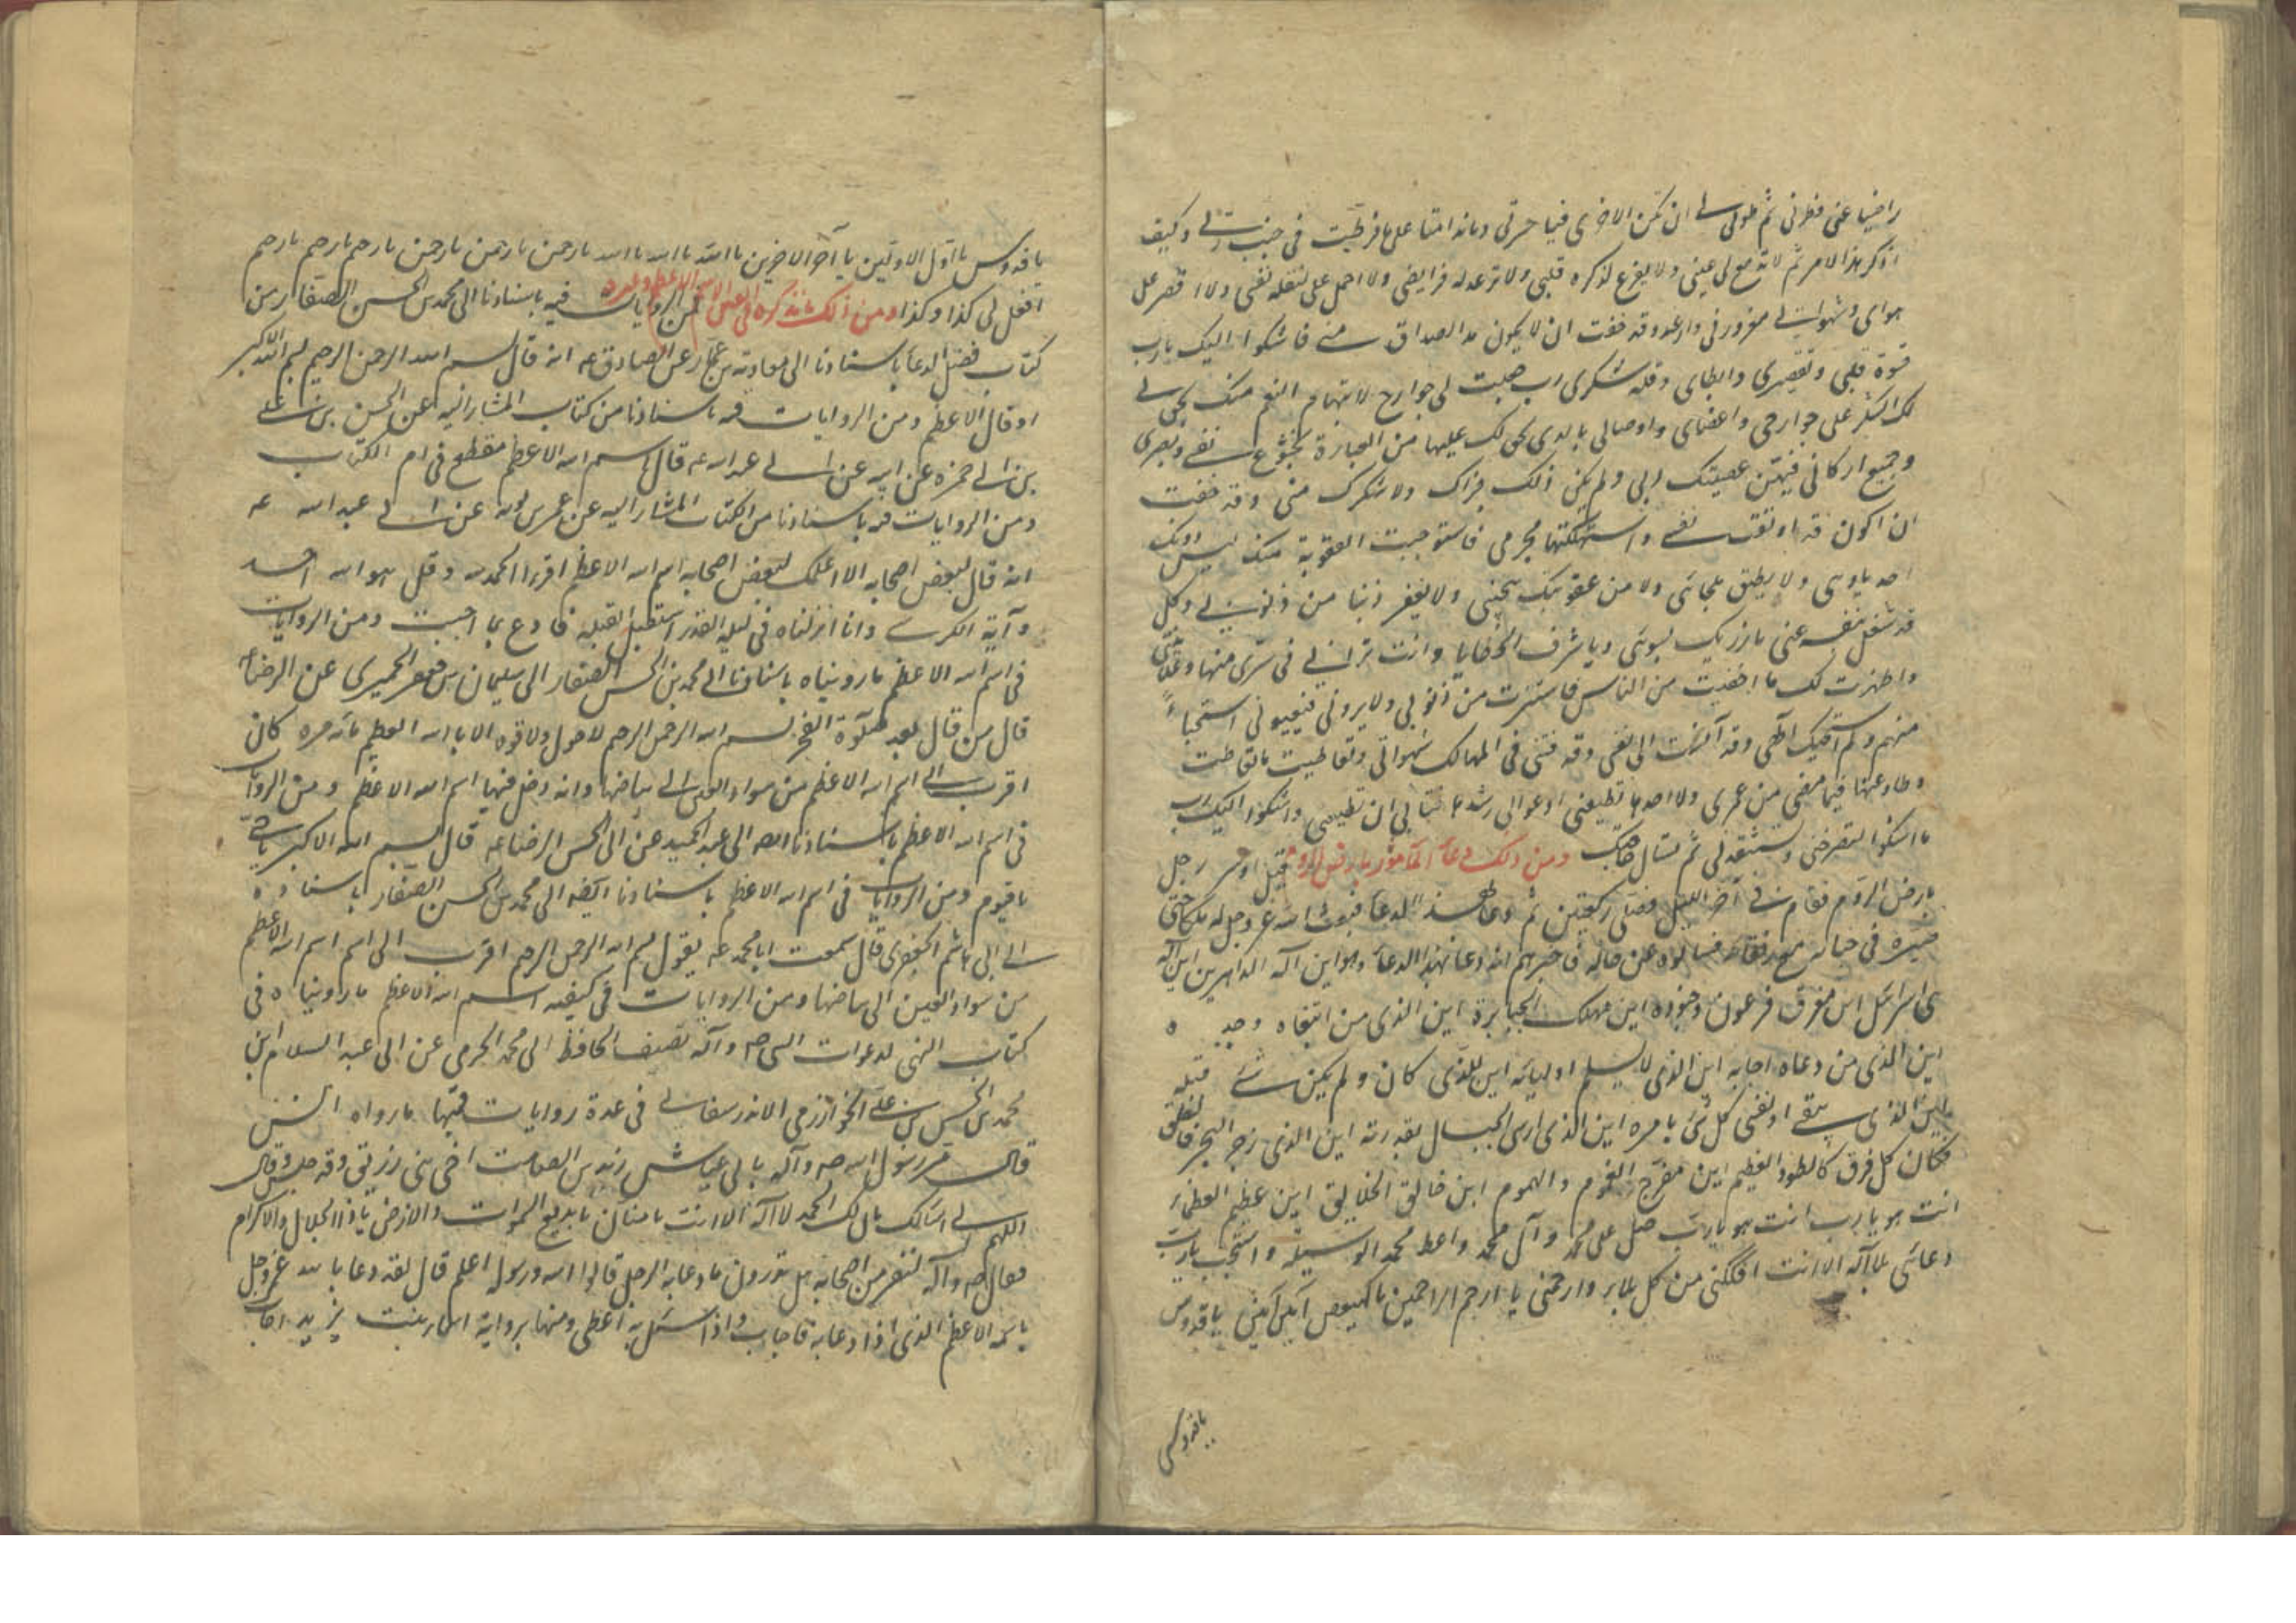 راضيا عنى فطرنى ثم طولى ان تكن الاخرى فيا حسرتى وندامتا على ما فرطت فى جنب ربى وكيف
اذكر هذا الامر ثم لا تدمع لى عينى ولا يفزع لذكره قلبى ولا ترعد له فرايضى ولا احمل على ثقله نفسى ولا اقصر على
هواى وشهواتى مغرور فى دار غرور قد خفت ان لا يكون هذا الصداق منى فاشكوا اليك يا رب
قسوة قلبى وتقصيرى وابطاى وقلة شكرى رب جعلت لى جوارح لاستتمام النعم منك يحق لى
لك الشكر على جوارحى واعضاى واوصالى بالذى يحق لك عليها من العبادة بخشوع نفسى وبصرى
وجميع اركانى فبهن عصيتك ربى ولم يكن ذلك جزاك ولا شكرك منى وقد خفت
ان اكون قد اوبقت نفسى واستهلكتها بجرمى فاستوجبت العقوبة منك ليس دونك
احد ياوينى ولا يطيق ملجائى ولا من عقوبتك ينجينى ولا يغفر ذنبا من ذنوبى وكل
قد شغل بنفسه عنى بارزتك بسوءتى وباشرت الخطايا وانت ترانى فى سرى منها وعلانيتى
واظهرت لك ما اخفيت من الناس فاستترت من ذنوبى ولا يرونى فيعيبونى استحياء
منهم ولم استحيك الهى وقد انست الى نفسى وقد قذفتنى فى المهالك شهواتى وتعاطيت ما تعاطت
وطاوعتها فيما مضى من عمرى ولا اجدها تطيعنى ادعو الى رشدها فتابى ان تطيعنى واشكوا اليك رب
ما اشكوا لتصرخنى وتستنقذنى ثم تسال حاجتك ومن ذلك دعاء الماسور بارض الروم قيل اوسر رجل
بارض الروم فقام فى آخر الليل فصلى ركعتين ثم دعا بهذا الدعاء فبعث الله عز وجل له ملكا حتى
صيره فى حباله مع رفقائه فسالوه عن حاله فاخبرهم انه دعا بهذا الدعاء وهو اين اله الداهرين اين اله
بنى اسرائيل اين مغرق فرعون وجنوده اين مهلك الجبابرة اين الذى من ابتغاه وجده
اين الذى من دعاه اجابه اين الذى لا يسلم اوليائه اين الذى كان ولم يكن شى قبله
اين الذى يبقى ويفنى كل شى بامره اين الذى ارسى الجبال بقدرته اين الذى زجر البحر فانفلق
فكان كل فرق كالطود العظيم اين مفرج الغموم والهموم اين خالق الخلايق اين عظيم العظماء
انت هو يا رب انت هو يا رب صل على محمد وآل محمد واعط محمد الوسيلة واستجب يا رب
دعائى يا لا اله الا انت افككنى من كل بلاء وارحمنى يا ارحم الراحمين يا كهيعص آمين آمين يا قدوس
يا قدوس
يا قدوس يا اول الاولين يا آخر الاخرين يا الله يا الله يا الله يا رحمن يا رحمن يا رحمن يا رحيم يا رحيم يا رحيم
افعل لى كذا وكذا ومن ذلك ما نذكره فى تعيين الاسم الاعظم فمن الروايات فيه باسنادنا الى محمد بن الحسن الصفار من
كتاب فضل الدعا باسنادنا الى معاوية بن عمار عن الصادق عه انه قال بسم الله الرحمن الرحيم اسم الله الاكبر
او قال الاعظم ومن الروايات فيه باسنادنا من كتاب المشار اليه عن الحسن بن على
بن ابى حمزة عن ابيه عن ابى عبد الله عه قال اسم الله الاعظم مقطع فى ام الكتاب
ومن الروايات فيه باسنادنا من الكتاب المشار اليه عن عمر بن توبه عن ابى عبد الله عه
انه قال لبعض اصحابه الا اعلمك اسم الله الاعظم اقرا الحمد لله وقل هو الله احد
وآية الكرسى وانا انزلناه فى ليلة القدر استقبل القبلة فادع بما احببت ومن الروايات
فى اسم الله الاعظم ما رويناه باسنادنا الى محمد بن الحسن الصفار الى سليمان بن جعفر الحميرى عن الرضا عه
قال من قال بعد صلوة الفجر بسم الله الرحمن الرحيم لا حول ولا قوة الا بالله العظيم مائة مرة كان
اقرب الى اسم الله الاعظم من سواد العين الى بياضها وانه دخل فيها اسم الله الاعظم ومن الروايات
فى اسم الله الاعظم باسنادنا الى عبد الحميد عن ابى الحسن الرضا عه قال اسم الله الاكبر يا حى
يا قيوم ومن الروايات فى اسم الله الاعظم باسنادنا ايضا الى محمد بن الحسن الصفار باسناده
الى ابى هاشم الجعفرى قال سمعت ابا محمد عه يقول بسم الله الرحمن الرحيم اقرب الى اسم الله الاعظم
من سواد العين الى بياضها ومن الروايات فى كيفية اسم الله الاعظم ما رويناه فى
كتاب البهى لدعوات النبى صه وآله تصنيف الحافظ ابى محمد الحرمى عن ابى عبد السلام بن
محمد بن الحسن بن على الخوارزمى الاندرسفانى فى عدة روايات فمنها ما رواه انس
قال مر رسول الله صه وآله بابى عياش زيد بن الصامت اخى بنى زريق وقد جلس وقال
اللهم انى اسالك بان لك الحمد لا اله الا انت يا منان يا بديع السموات والارض يا ذا الجلال والاكرام
فقال صه وآله لنفر من اصحابه هل تدرون ما دعا به الرجل قالوا الله ورسوله اعلم قال لقد دعا بالله عز وجل
باسمه الاعظم الذى اذا دعا به اجاب واذا سئل به اعطى ومنها برواية اسماء بنت يزيد